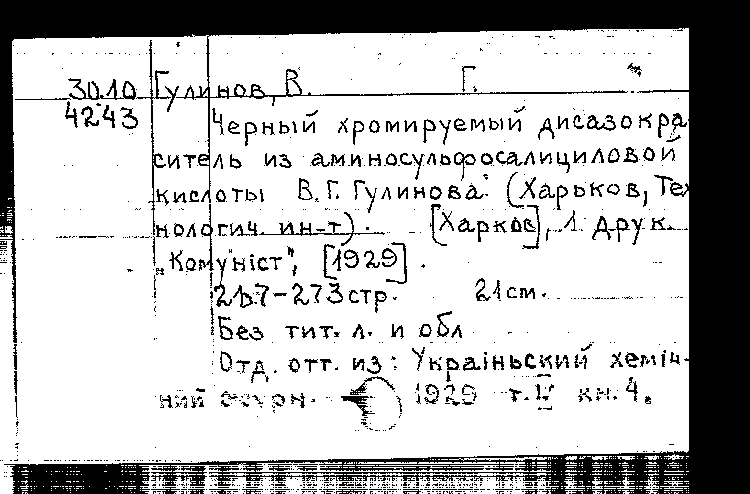 30.10 Гулинов, В. Г.
4243 Черный хромируемый дисазокра
ситель из аминосульфосалициловой
кислоты В.Г. Гулинова. (Харьков, Тех
нологич. ин-т). [Харков], 1. друк.
„Комуніст", [1929].
267-273 стр. 21 см.
Без тит. л. и обл
Отд. отт. из: Украіньский хеміч-
ний журн. 1929 т. IV кн. 4.